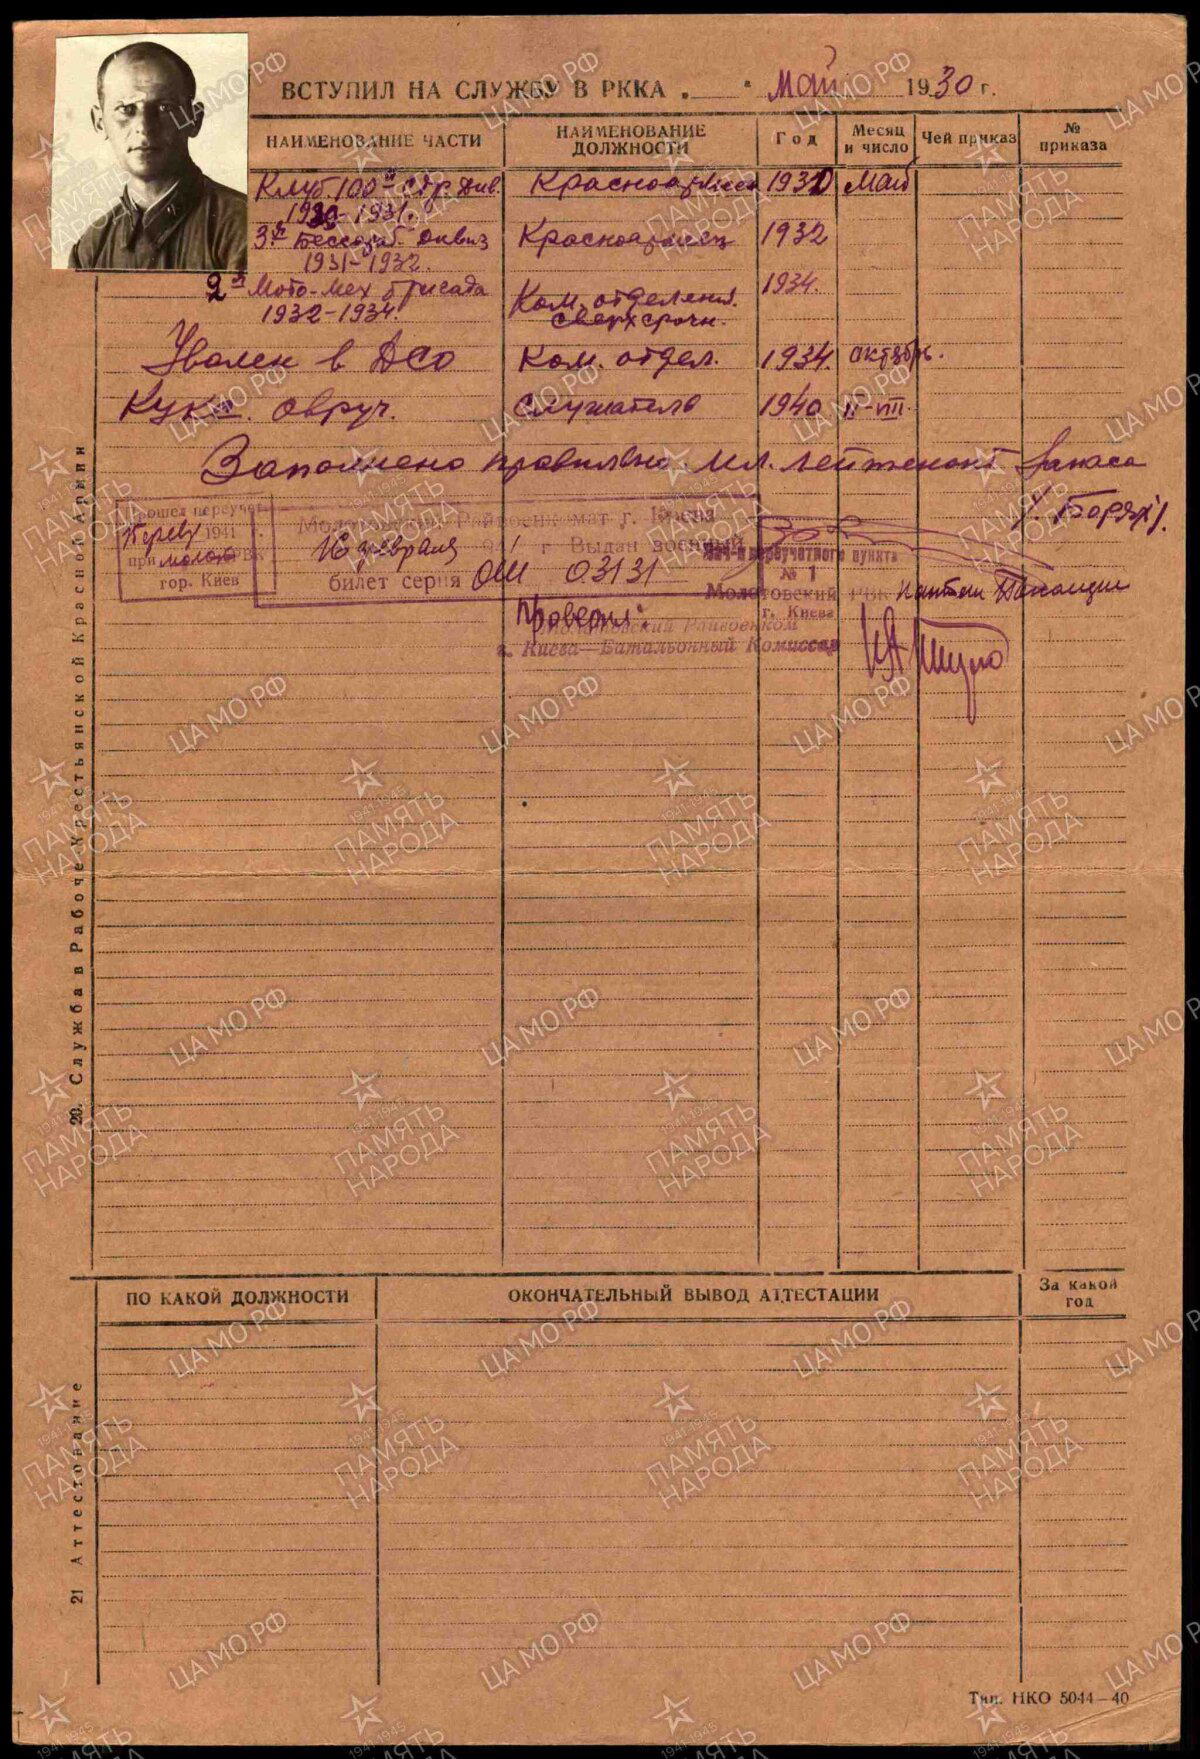 ВСТУПИЛ НА СЛУЖБУ В РККА „ “ май 1930 г.
НАИМЕНОВАНИЕ ЧАСТИ
НАИМЕНОВАНИЕ ДОЛЖНОСТИ
Год
Месяц и число
Чей приказ
№ приказа
Клуб 100й стр. див. Красноармеец 1930 май
1930-1931.
3й Бессараб. дивиз Красноармеец 1932
1931-1932.
2й Мото-мех бригада Ком. отделения. 1934.
1932-1934. сверхсрочн.
Уволен в ДСО Ком. отдел. 1934. октябрь.
Овруч. Слушатель 1940 II-VIII.
Заполнено правильно. Мл. лейтенант запаса
Прошел переучет
1941
при РВК
гор. Киев
Молотовский Райвоенкомат г. Киева
16 февраля 941 г Выдан военный
билет серия ОШ 03131
Нач-к переучетного пункта
№ 1
Молотовский РВК капитан
г. Киева
Проверил:
Молотовский Райвоенком
г. Киева—Батальонный Комиссар
20. Служба в Рабоче-Крестьянской Красной Армии
ПО КАКОЙ ДОЛЖНОСТИ
ОКОНЧАТЕЛЬНЫЙ ВЫВОД АТТЕСТАЦИИ
За какой год
21 Аттестование
Тип. НКО 5044—40
ЦА МО РФ
1941-1945
ПАМЯТЬ
НАРОДА